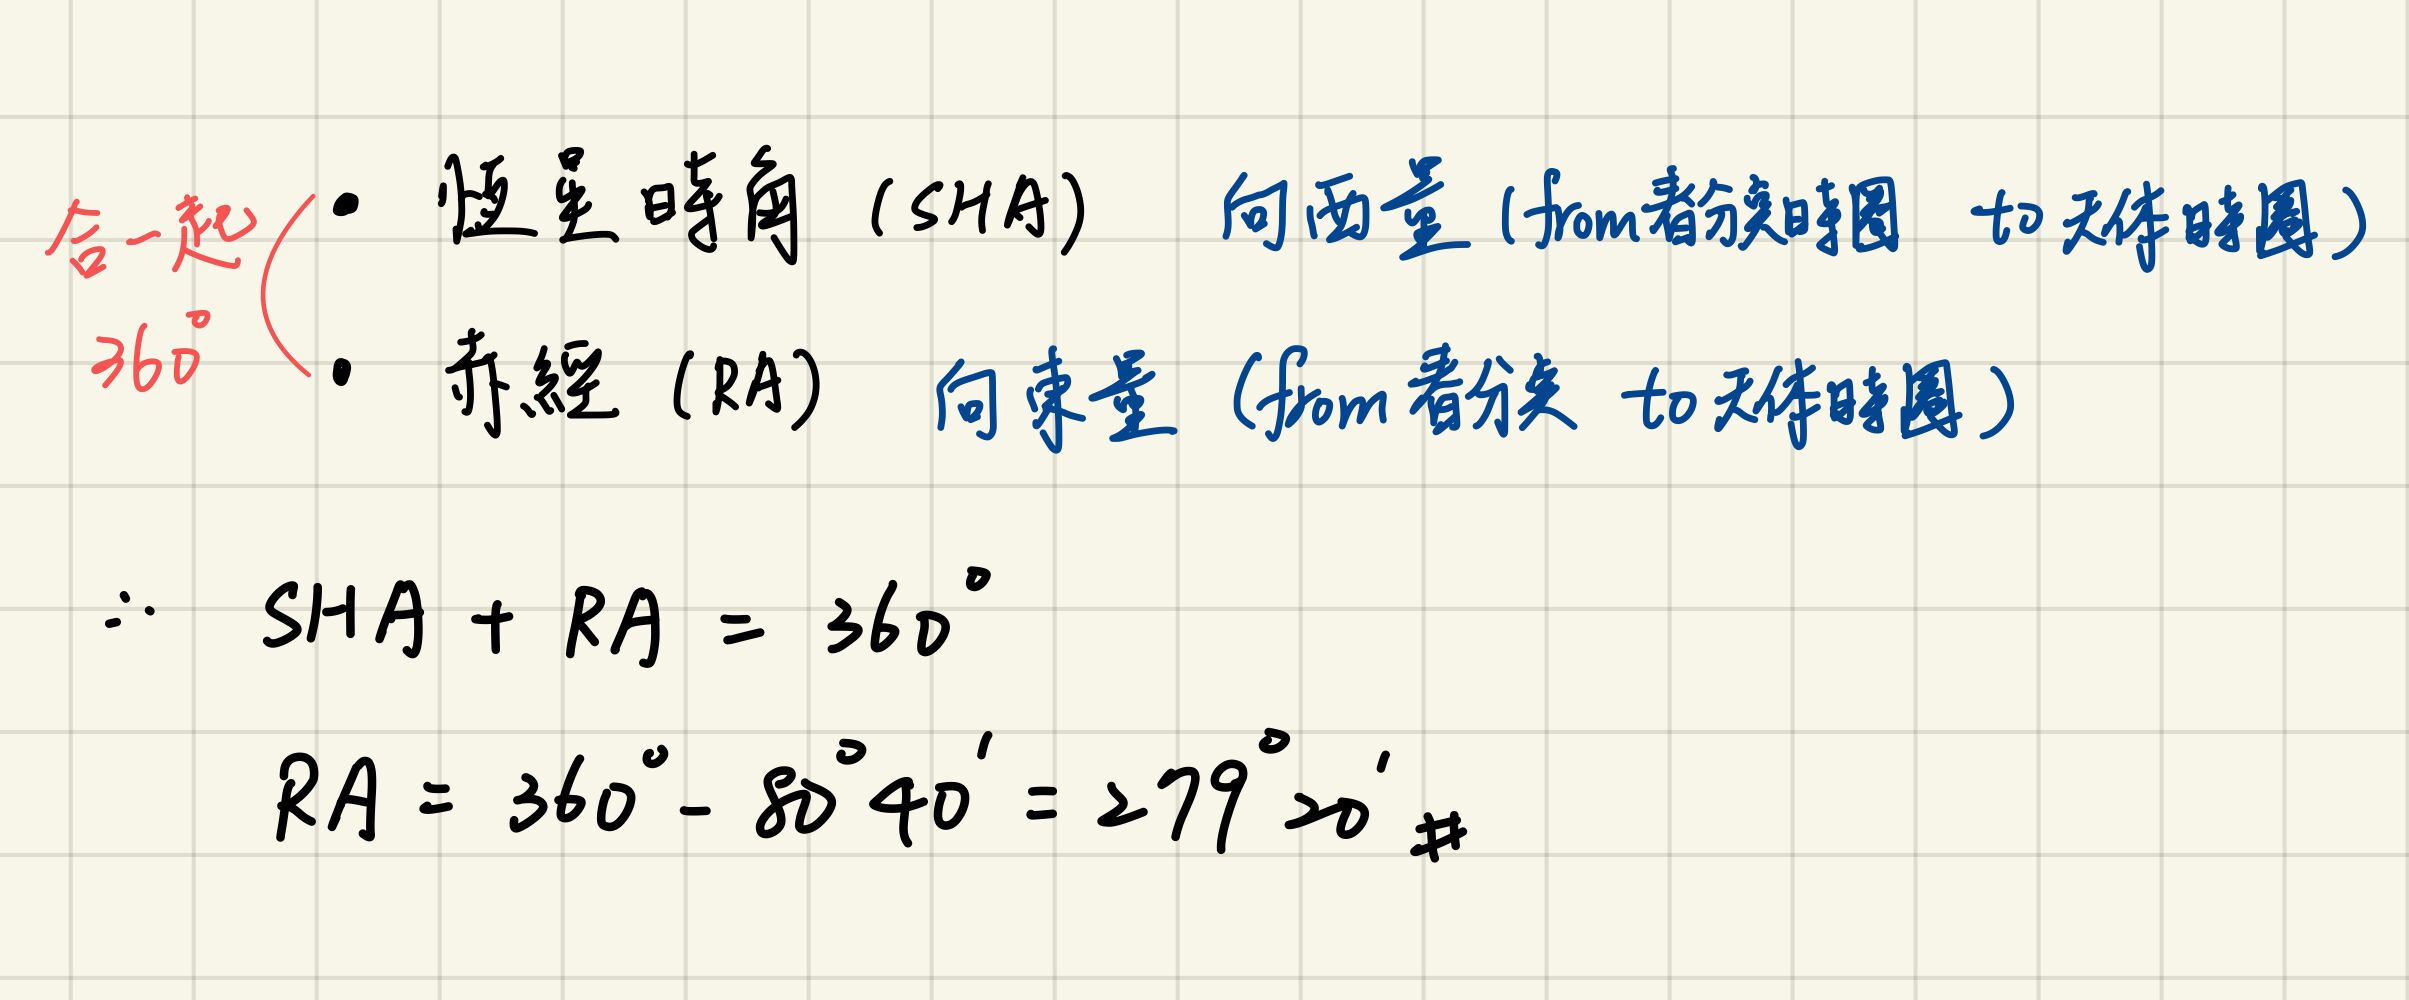 合一起
360°
• 恆星時角 (SHA) 向西量 (from春分點時圈 to 天体時圈)
• 赤經 (RA) 向東量 (from 春分点 to 天体時圈)
∴ SHA + RA = 360°
RA = 360° - 80°40' = 279°20' #